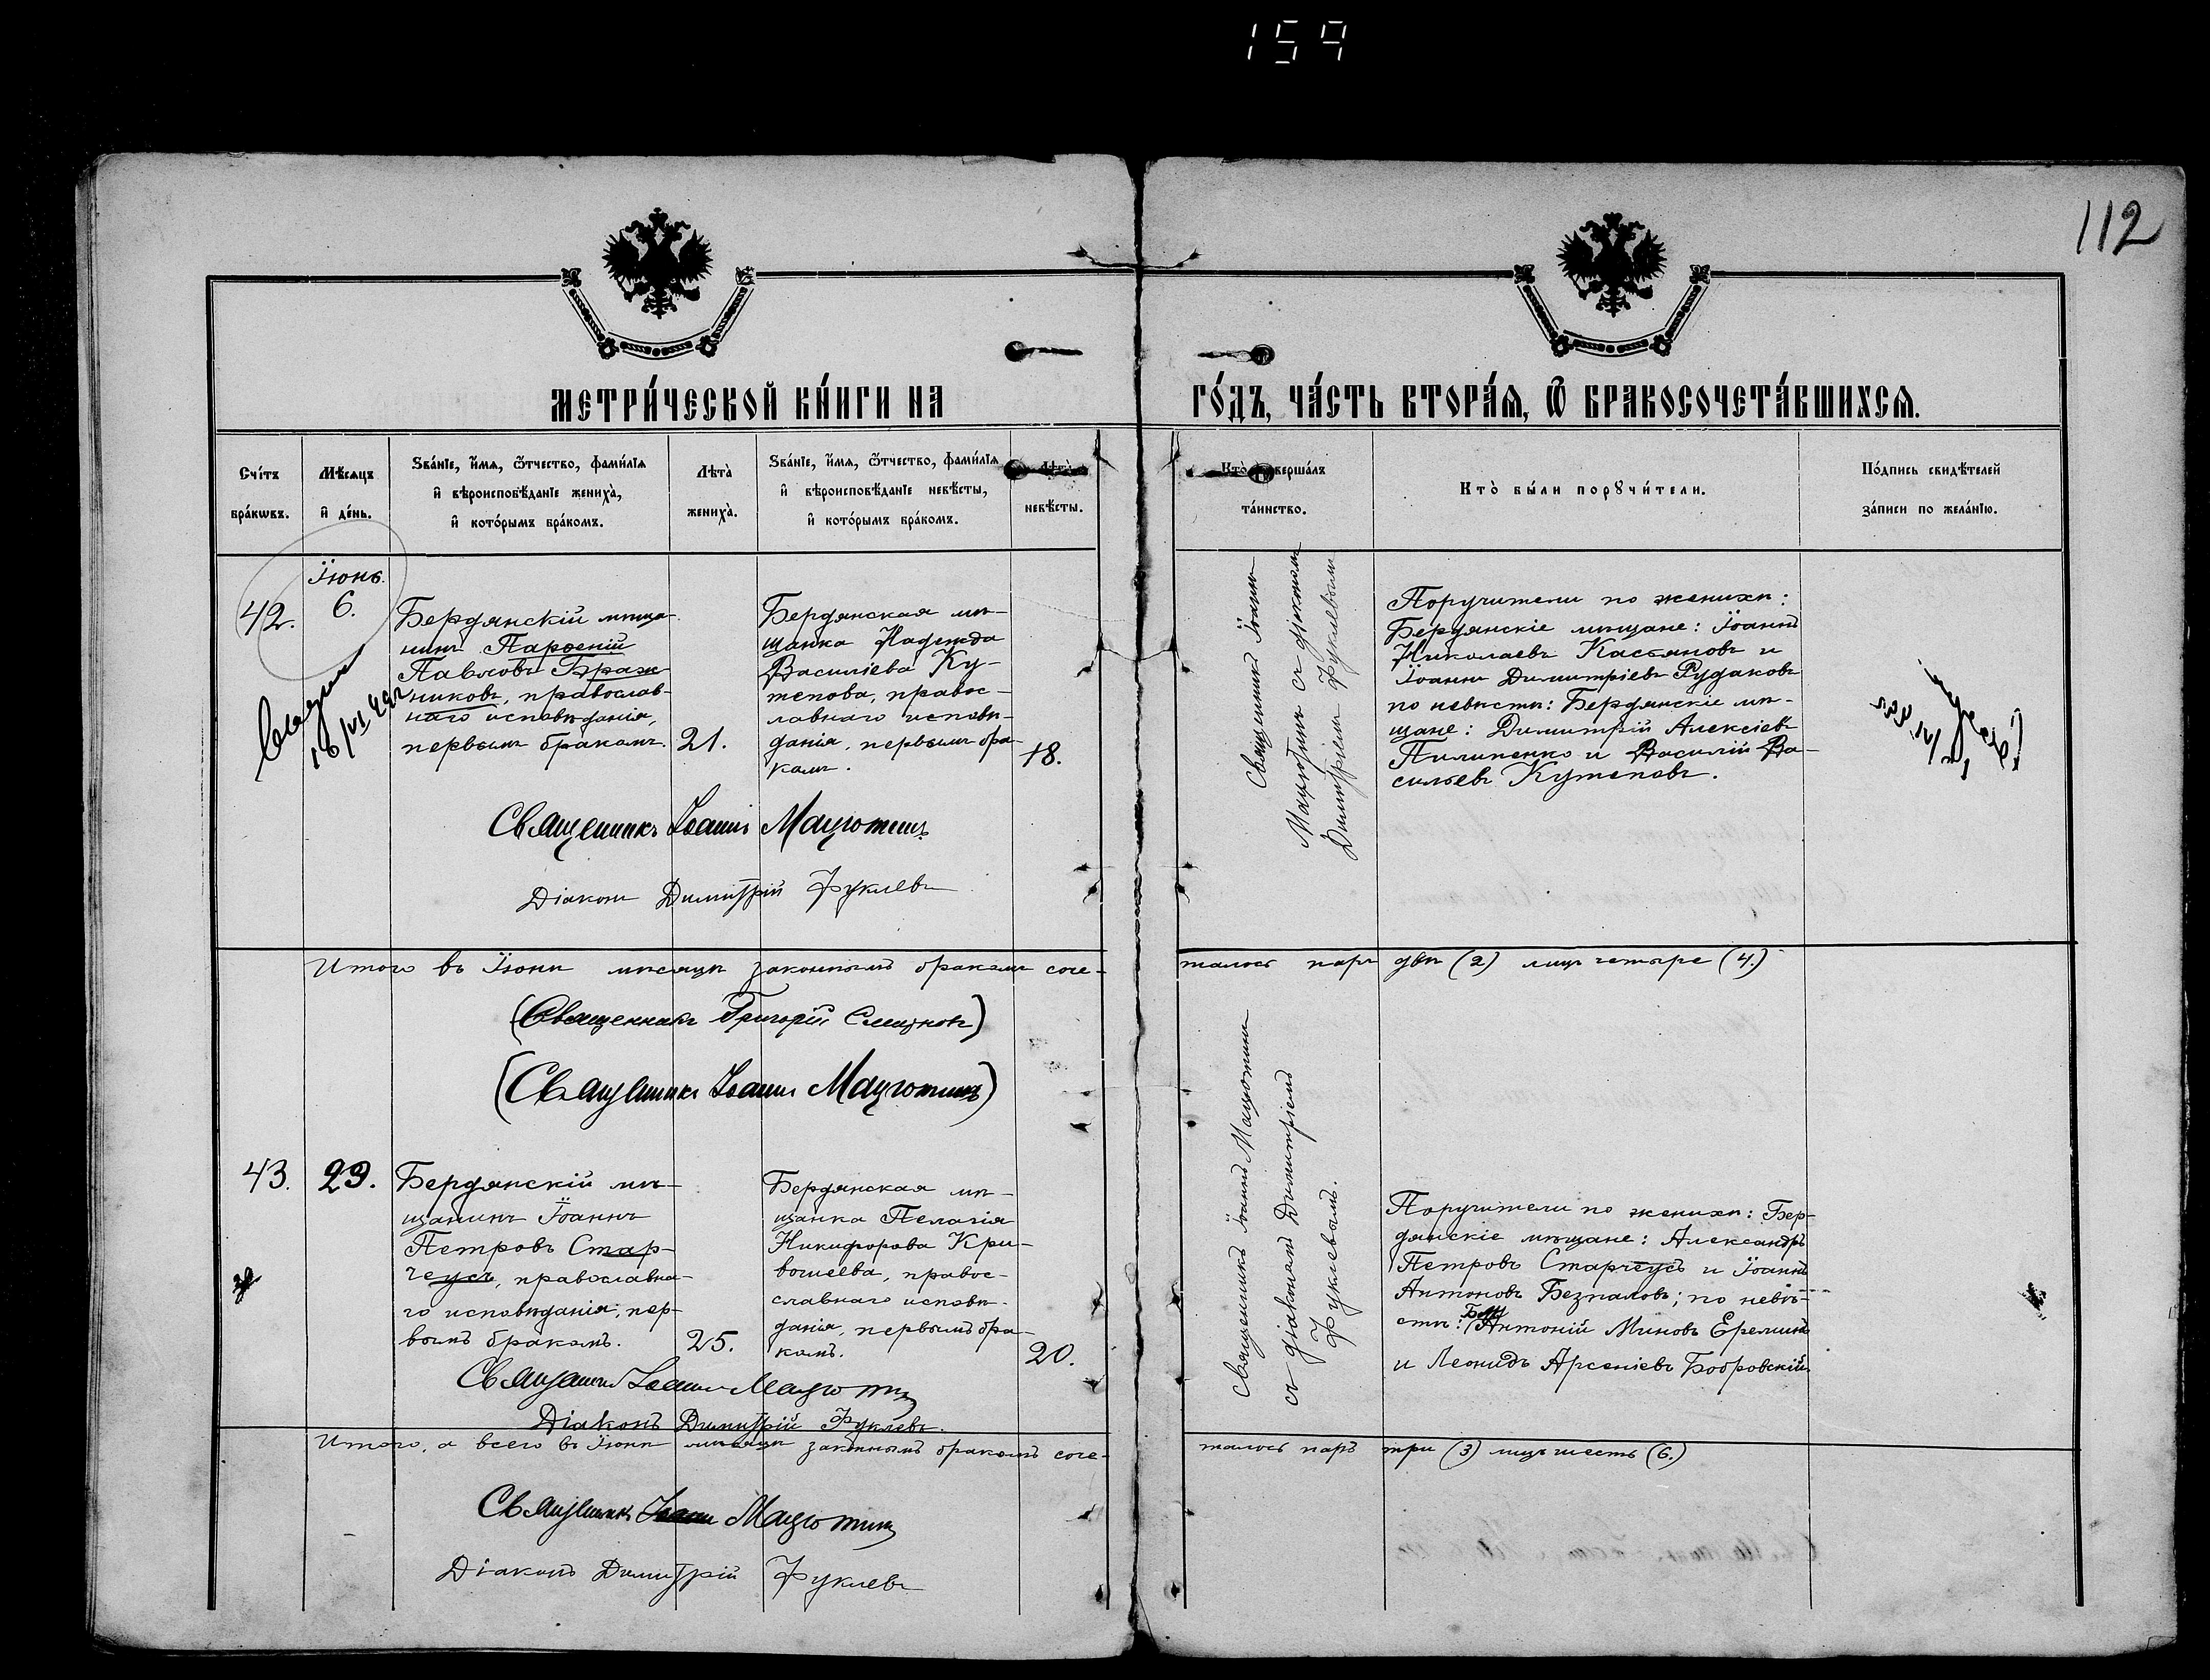 159
112
МЕТРИ́ЧЕСКОЙ КНИ́ГИ НА
ГО́ДЪ, ЧА́СТЬ ВТОРА́Я, Ѿ БРАКОСОЧЕТА́ВШИХСЯ.
Сче́тъ
бра́кѡвъ.
Мѣ́сяцъ
и҆ де́нь.
Ѕва́нїе, и҆́мя, ѻ҆́тчество, фами́лїя
и҆ вѣроисповѣ́данїе жениха̀,
и҆ кото́рымъ бра́комъ.
Лѣта̀
жениха̀.
Ѕва́нїе, и҆́мя, ѻ҆́тчество, фами́лїя
и҆ вѣроисповѣ́данїе невѣ́сты,
и҆ кото́рымъ бра́комъ.
Лѣта̀
невѣ́сты.
Кто̀ соверша́лъ
та́инство.
Кто̀ бы́ли порꙋчи́тели.
По́дпись свидѣ́телей
за́писи по жела́нїю.
Іюнь.
42.
6.
Бердянскій мѣща-
нинъ Парѳеній
Павловъ Браж-
никовъ, православ-
наго исповѣданія,
первымъ бракомъ.
21.
Бердянская мѣ-
щанка Надежда
Василіева Ку-
тепова, правос-
лавнаго исповѣ-
данія, первымъ бра-
комъ.
18.
Священникъ Іоаннъ
Мацютинъ съ діакономъ
Димитріемъ Фуклевымъ
Поручители по женихѣ:
Бердянскіе мѣщане: Іоаннъ
Николаевъ Касьяновъ и
Іоаннъ Димитріевъ Рудаковъ
по невѣстѣ: Бердянскіе мѣ-
щане: Димитрій Алексіевъ
Пилипенко и Василій Ва-
сильевъ Кутеповъ.
Священникъ Іоаннъ Мацютинъ
Діаконъ Димитрій Фуклевъ
Итого въ Іюнѣ мѣсяцѣ законнымъ бракомъ соче-
талось паръ двѣ (2) лицъ четыре (4.)
(Священникъ Григорій)
(Священникъ Іоаннъ Мацютинъ)
43.
29.
Бердянскій мѣ-
щанинъ Іоаннъ
Петровъ Стар-
чеусъ, православна-
го исповѣданія, пер-
вымъ бракомъ.
25.
Бердянская мѣ-
щанка Пелагія
Никифорова Кри-
вошеева, правос-
славнаго исповѣ-
данія, первымъ бра-
комъ.
20.
Священникъ Іоаннъ Мацютинъ
съ діакономъ Димитріемъ
Фуклевымъ.
Поручители по женихѣ: Бер-
дянскіе мѣщане: Александръ
Петровъ Старчеусъ и Іоаннъ
Антоновъ Безпаловъ; по невѣ-
стѣ: Антоній Миновъ Ереминъ
и Леонидъ Арсеніевъ Бобровскій
Священникъ Іоаннъ Мацютинъ
Діаконъ Димитрій Фуклевъ.
Итого, а всего въ Іюнѣ мѣсяцѣ законнымъ бракомъ соче-
талось паръ три (3) лицъ шесть (6.)
Священникъ Іоаннъ Мацютинъ
Діаконъ Димитрій Фуклевъ